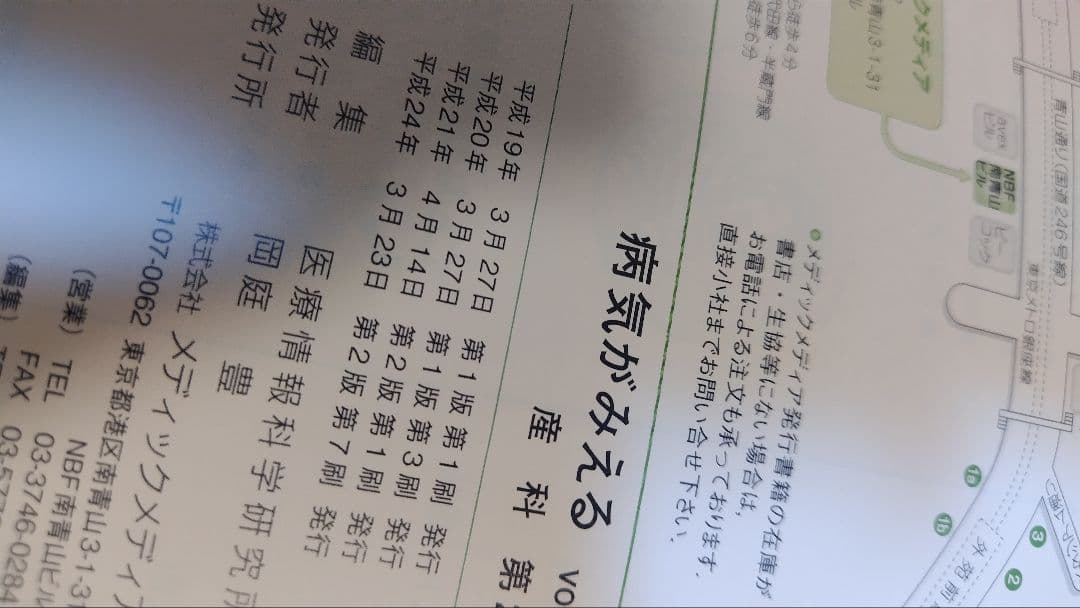 クメディア
青山3-1-31
ル
徒歩4分
半蔵門線
徒歩6分
青山通り(国道246号線)
avex
ビル
NBF
南青山
ビル
ピー
コック
東京メトロ銀座線
1a
1b
外苑前
3
2
メディックメディア発行書籍の在庫が
書店・生協等にない場合は,
お電話による注文も承っております.
直接小社までお問い合せ下さい.
病気がみえる vo
産科 第
平成19年 3月27日 第1版 第1刷 発行
平成20年 3月27日 第1版 第3刷 発行
平成21年 4月14日 第2版 第1刷 発行
平成24年 3月23日 第2版 第7刷 発行
編集 医療情報科学研究所
発行者 岡庭 豊
発行所 株式会社 メディックメディア
〒107-0062 東京都港区南青山3-1-31
NBF南青山ビル
(営業) TEL 03-3746-0284
FAX 03-5
(編集)